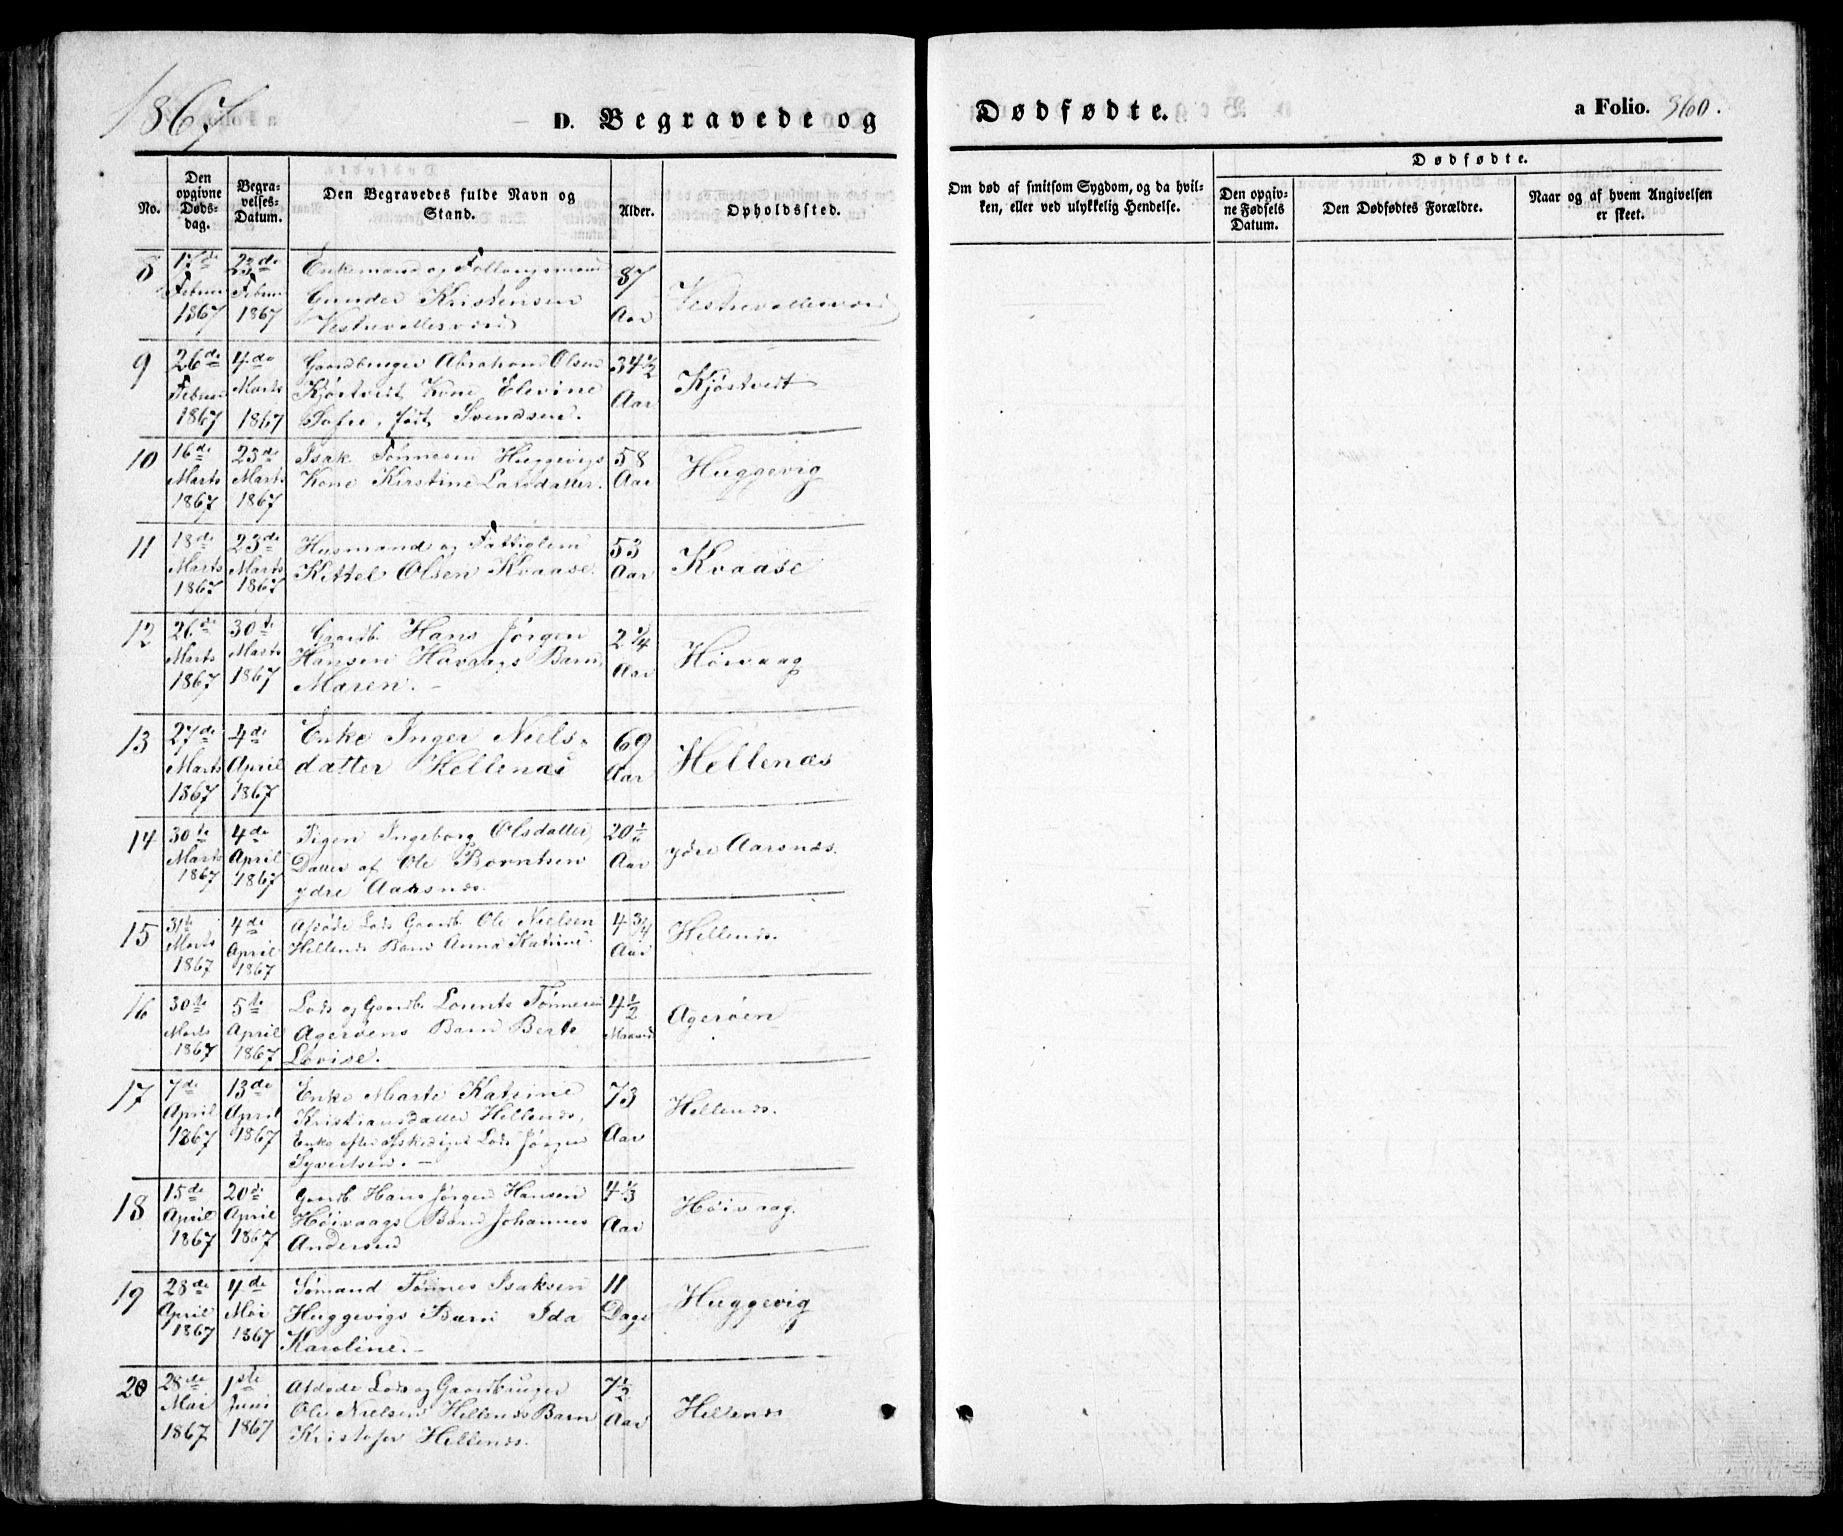 1867
D. Begravede og Dødfødte.
a Folio. 360.
No.
Den opgivne Døds-dag.
Begra-velses-Datum.
Den Begravedes fulde Navn og Stand.
Alder.
Opholdssted.
Om død af smitsom Sygdom, og da hvil-
ken, eller ved ulykkelig Hendelse.
Dødfødte.
Den opgiv-
ne Fødsels
Datum.
Den Dødfødtes Forældre.
Naar og af hvem Angivelsen
er skeet.
8 17de 23de Enkemand og 87
Februar Februar Gunder Kristensen Aar
1867 1867
9 26de 4de Gaardbruger Abraham Olsen 34 1/2 Kjøstvedt
Februar Marts Kjøstvedt Kone Elevine Aar
1867 1867 Sofie, født Svendsen.
10 16de 23de Isak Tønnesen Huggevigs 58 Huggevig
Marts Marts Kone Kirstine Larsdatter. Aar
1867 1867
11 18de 23de Husmand og Fattiglem 53 Kvaase
Marts Marts Kittel Olsen Kvaase. Aar
1867 1867
12 26de 30te Gaardb. Hans Jørgen 2 1/4
Marts Marts Hansen Barn, Aar
1867 1867 Maren. —
13 27de 4de Enke Inger Niels- 69 Hellenæs
Marts April datter Hellenæs Aar
1867 1867
14 30te 4de Pigen Ingeborg Olsdatter, 20 ydre Aarsnæs.
Marts April Datter af Ole Berntsen Aar
1867 1867 ydre Aarsnæs.
15 31te 4de Afdøde Lods Gaardb. Ole Nielsen 4 3/4 Hellenæs.
Marts April Hellenæs Barn Anna Katrine. Aar
1867 1867
16 30te 5te Lods og Gaardb. Lorents Tønnesen 4 1/2 Agerøen
Marts April Agerøens Barn Berte Maaned
1867 1867 Lovise.
17 7de 13de Enke Marte Katrine 73 Hellenæs.
April April Kristiansdatter Hellenæs, Aar
1867 1867 Enke efter afskediget Lods Jørgen
Syvertsen. —
18 15de 20de Gaardb. Hans Jørgen Hansen 4 1/3 Høivaag.
April April Høivaags Barn Johannes Aar
1867 1867 Andersen
19 28de 4de Sømand Tønnes Isaksen 11 Huggevig
April Mai Huggevigs Barn Ida Dage
1867 1867 Karoline. —
20 28de 1ste Afdøde Lods og Gaardbruger 7 1/2 Hellenæs
Mai Juni Ole Nielsen Hellenæs Barn Aar
1867 1867 Kristofer Hellenæs.